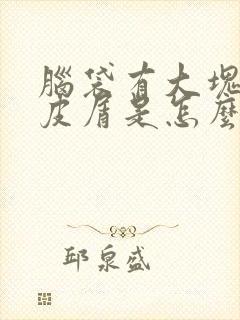 腦袋有大塊
皮屑是怎麼
邱泉盛